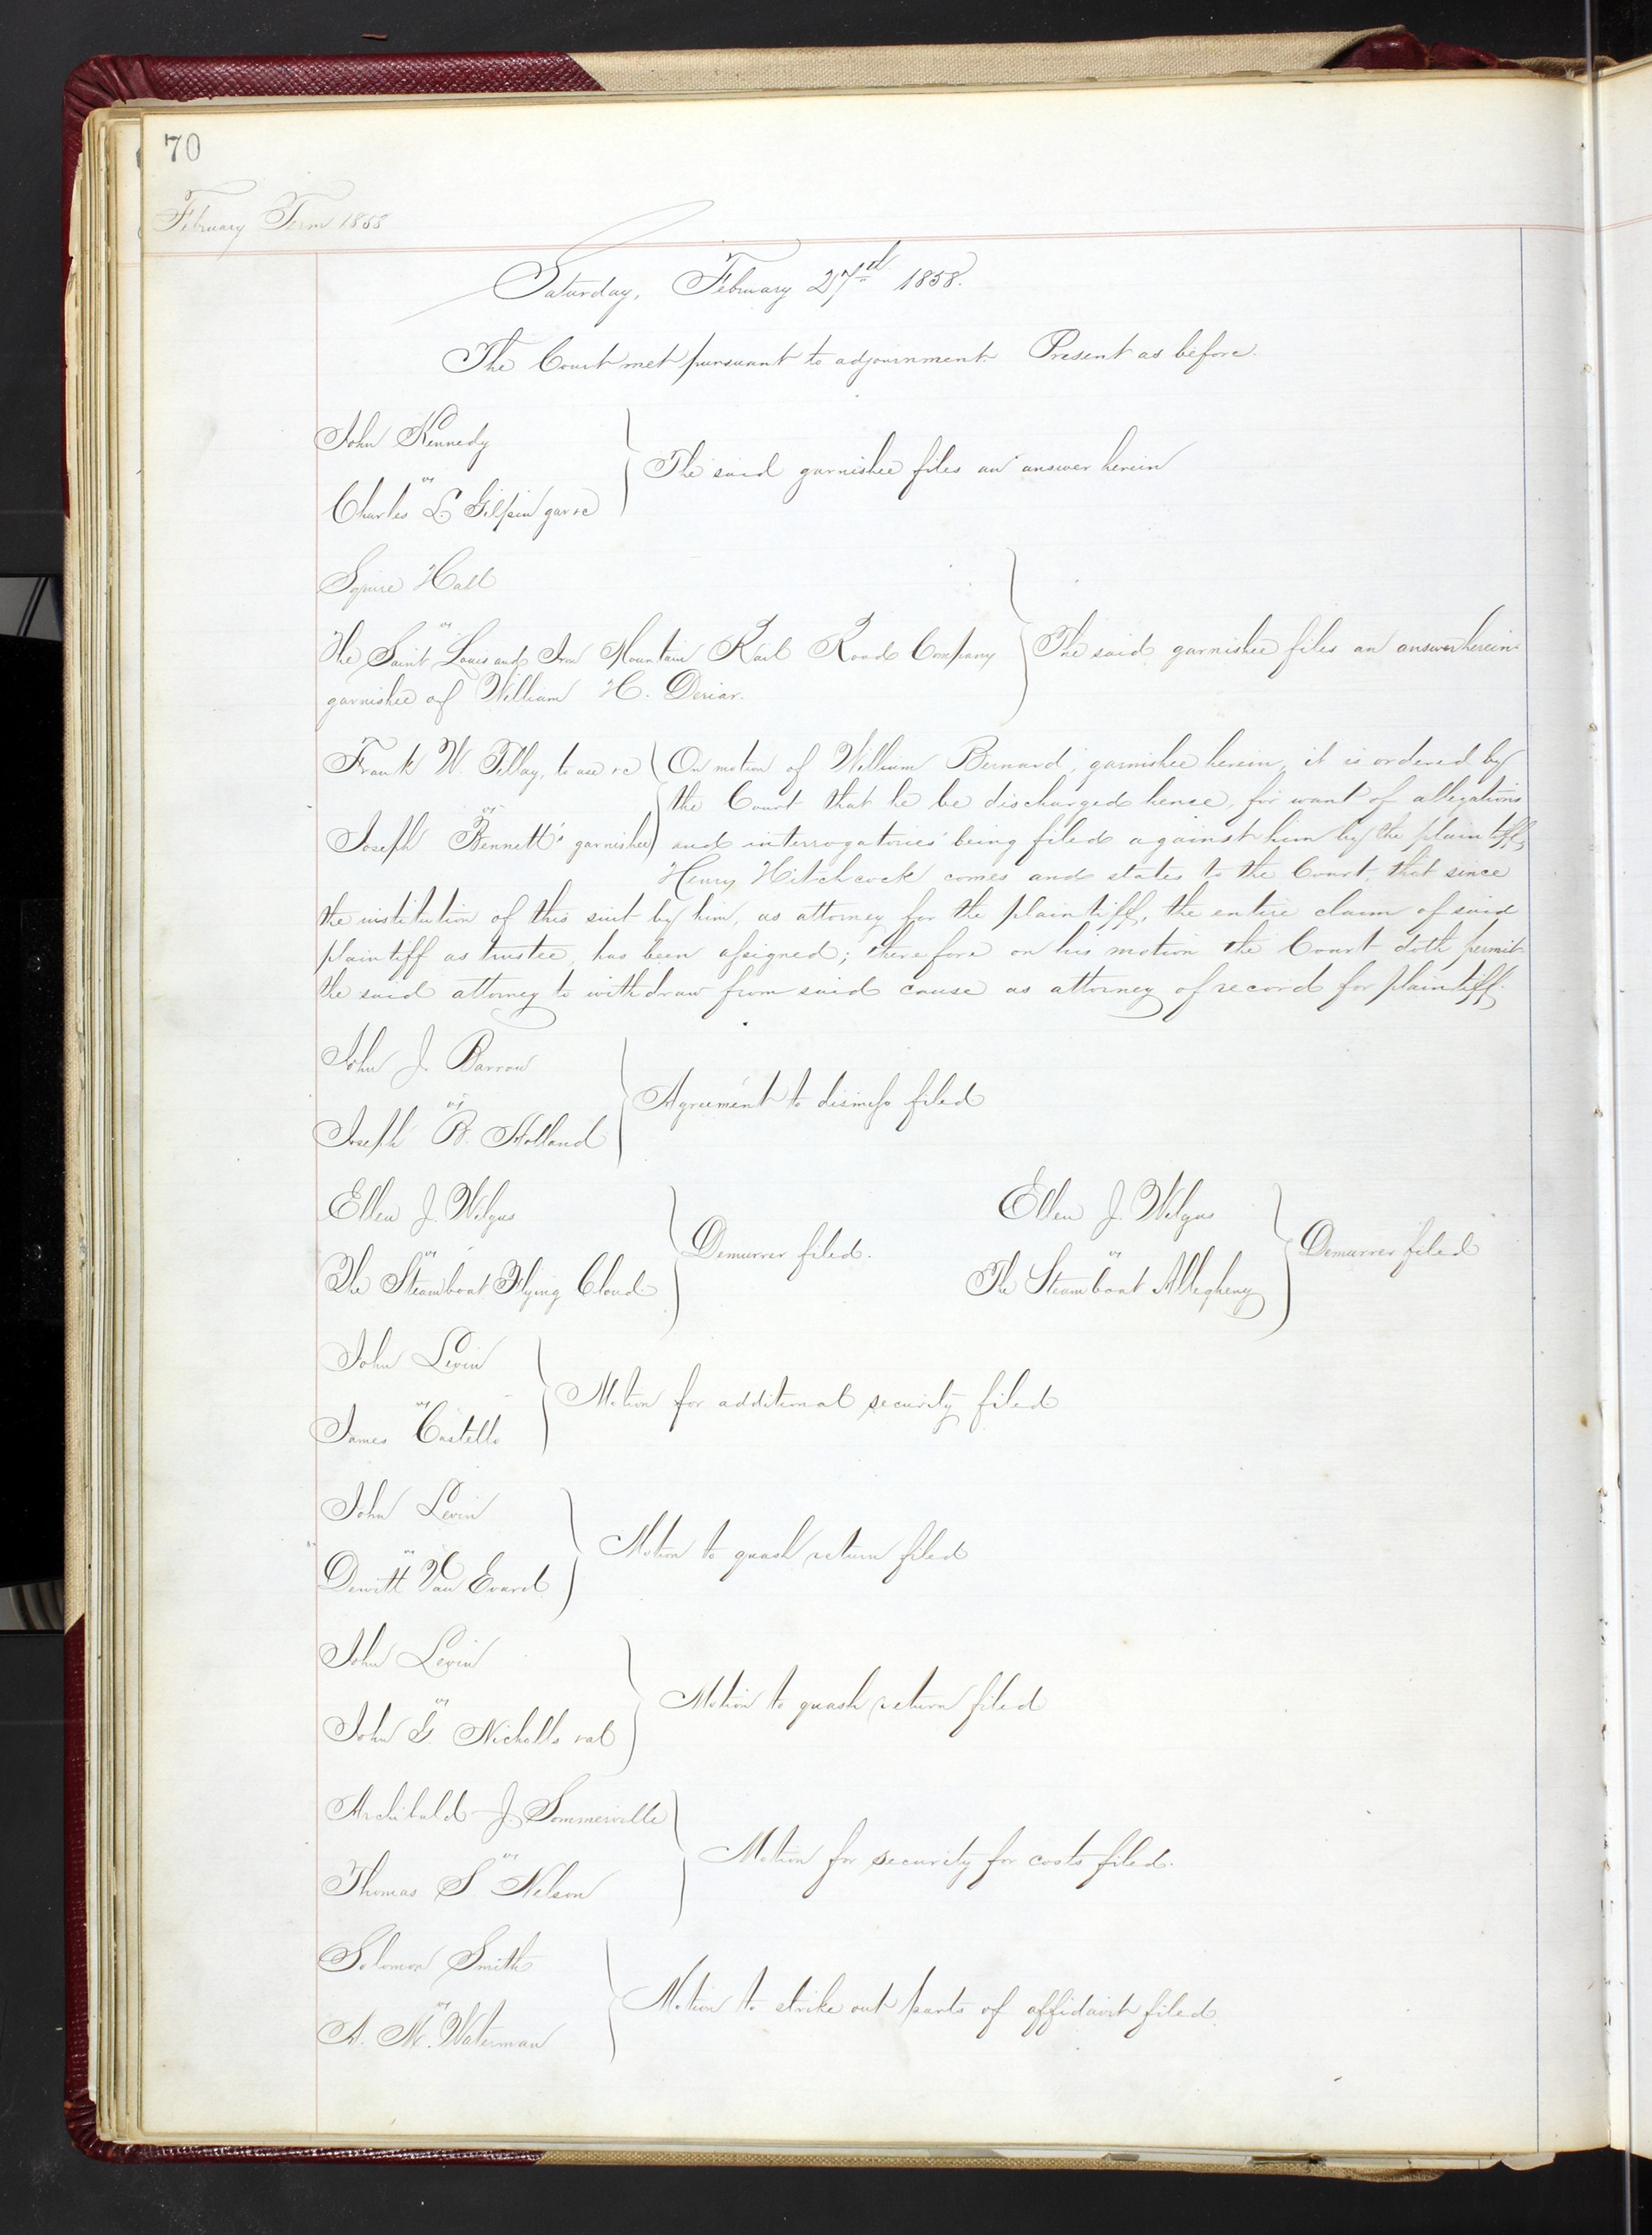 70
February Term 1858
Saturday, February 27d 1858.
The Court met pursuant to adjournment. Present as before.
John Kennedy
vs
Charles L. Gilpin gar &c
The said garnishee files an answer herein
Squire Hall
vs
The Saint Louis and Iron Mountain Rail Road Company
garnishee of William H. Deriar.
The said garnishee files an answer herein.
Frank W. Tellay, to use &c
vs
Joseph Bennett's garnishee
On motion of William Bernard, garnishee herein, it is ordered by
the Court that he be discharged hence, for want of allegations
and interrogatories being filed against him by the plaintiff,
Henry Hitchcock comes and states to the Court, that since
the institution of this suit by him, as attorney for the plaintiff, the entire claim of said
plaintiff as trustee, has been assigned; therefore on his motion the Court doth permit
the said attorney to withdraw from said cause as attorney of record for plaintiff.
John J. Barrow
vs
Joseph B. Holland
Agreement to dismiss filed
Ellen J. Wilgus
vs
The Steamboat Flying Cloud
Demurrer filed.
Ellen J. Wilgus
vs
The Steamboat Allegheny
Demurrer filed
John Levin
vs
James Castello
Motion for additional security filed
John Levin
vs
Dewitt Van Evard
Motion to quash return filed
John Levin
vs
John G. Nicholls &al
Motion to quash return filed
Archibald J. Sommerville
vs
Thomas S Nelson
Motion for security for costs filed.
Solomon Smith
vs
A. M. Waterman
Motion to strike out parts of affidavit filed.